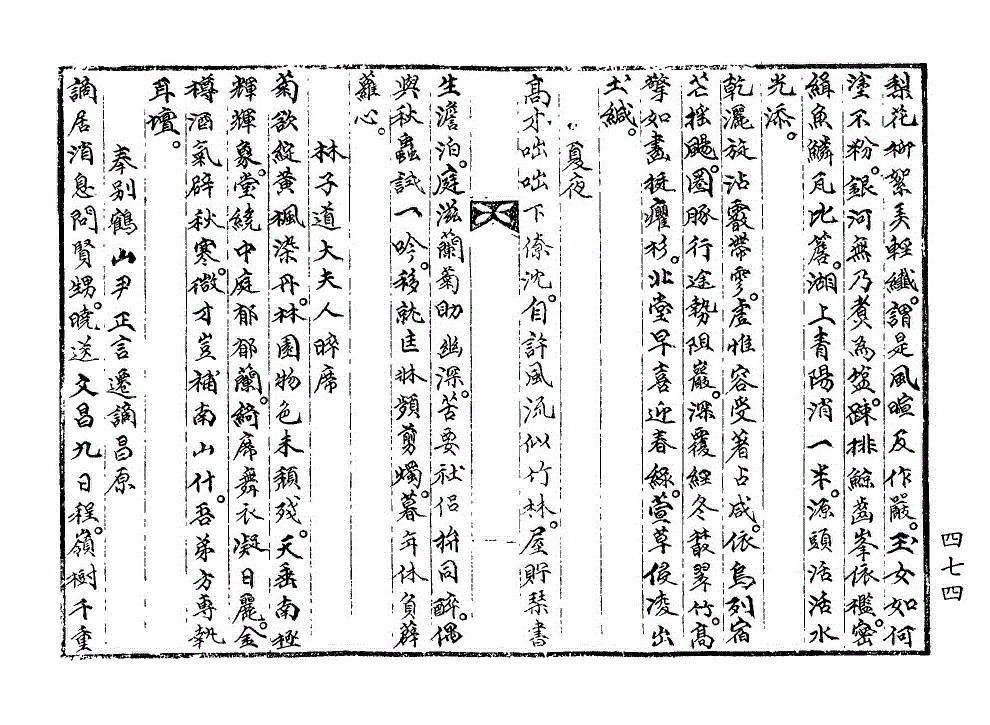 梨花柳絮羙輕纖。謂是風暄反作嚴。玉女如何
塗不粉。銀河無乃煑為塩。踈排鯨齒峯依檻。密
緝魚鱗瓦比簷。湖上青陽消一半。源頭活活水
光添。
乾灑旋沾霰帶零。虛惟容受著占咸。依烏列宿
芒搖颺。圂豚行途勢阻巖。深覆經冬叢翠竹。高
擎如畫挺癯杉。北堂早喜迎春綠。萱草侵凌出
土緘。
夏夜
高才咄咄下僚沈。自許風流似竹林。屋貯琴書
生澹泊。庭滋蘭菊助幽深。苦要社侣拚同醉。偶
與秋蟲試一吟。移就匡牀頻剪燭。暮年休負薜
蘿心。
林子道大夫人晬席
菊欲綻黃楓染丹。林園物色未頹殘。天垂南極
輝輝象。堂繞中庭郁郁蘭。綺席舞衣凝日麗。金
樽酒氣辟秋寒。微才豈補南山什。吾弟方專執
耳壇。
奉别鶴山尹正言遷謫昌原
謫居消息問賢甥。曉送文昌九日程。嶺樹千重
四七四